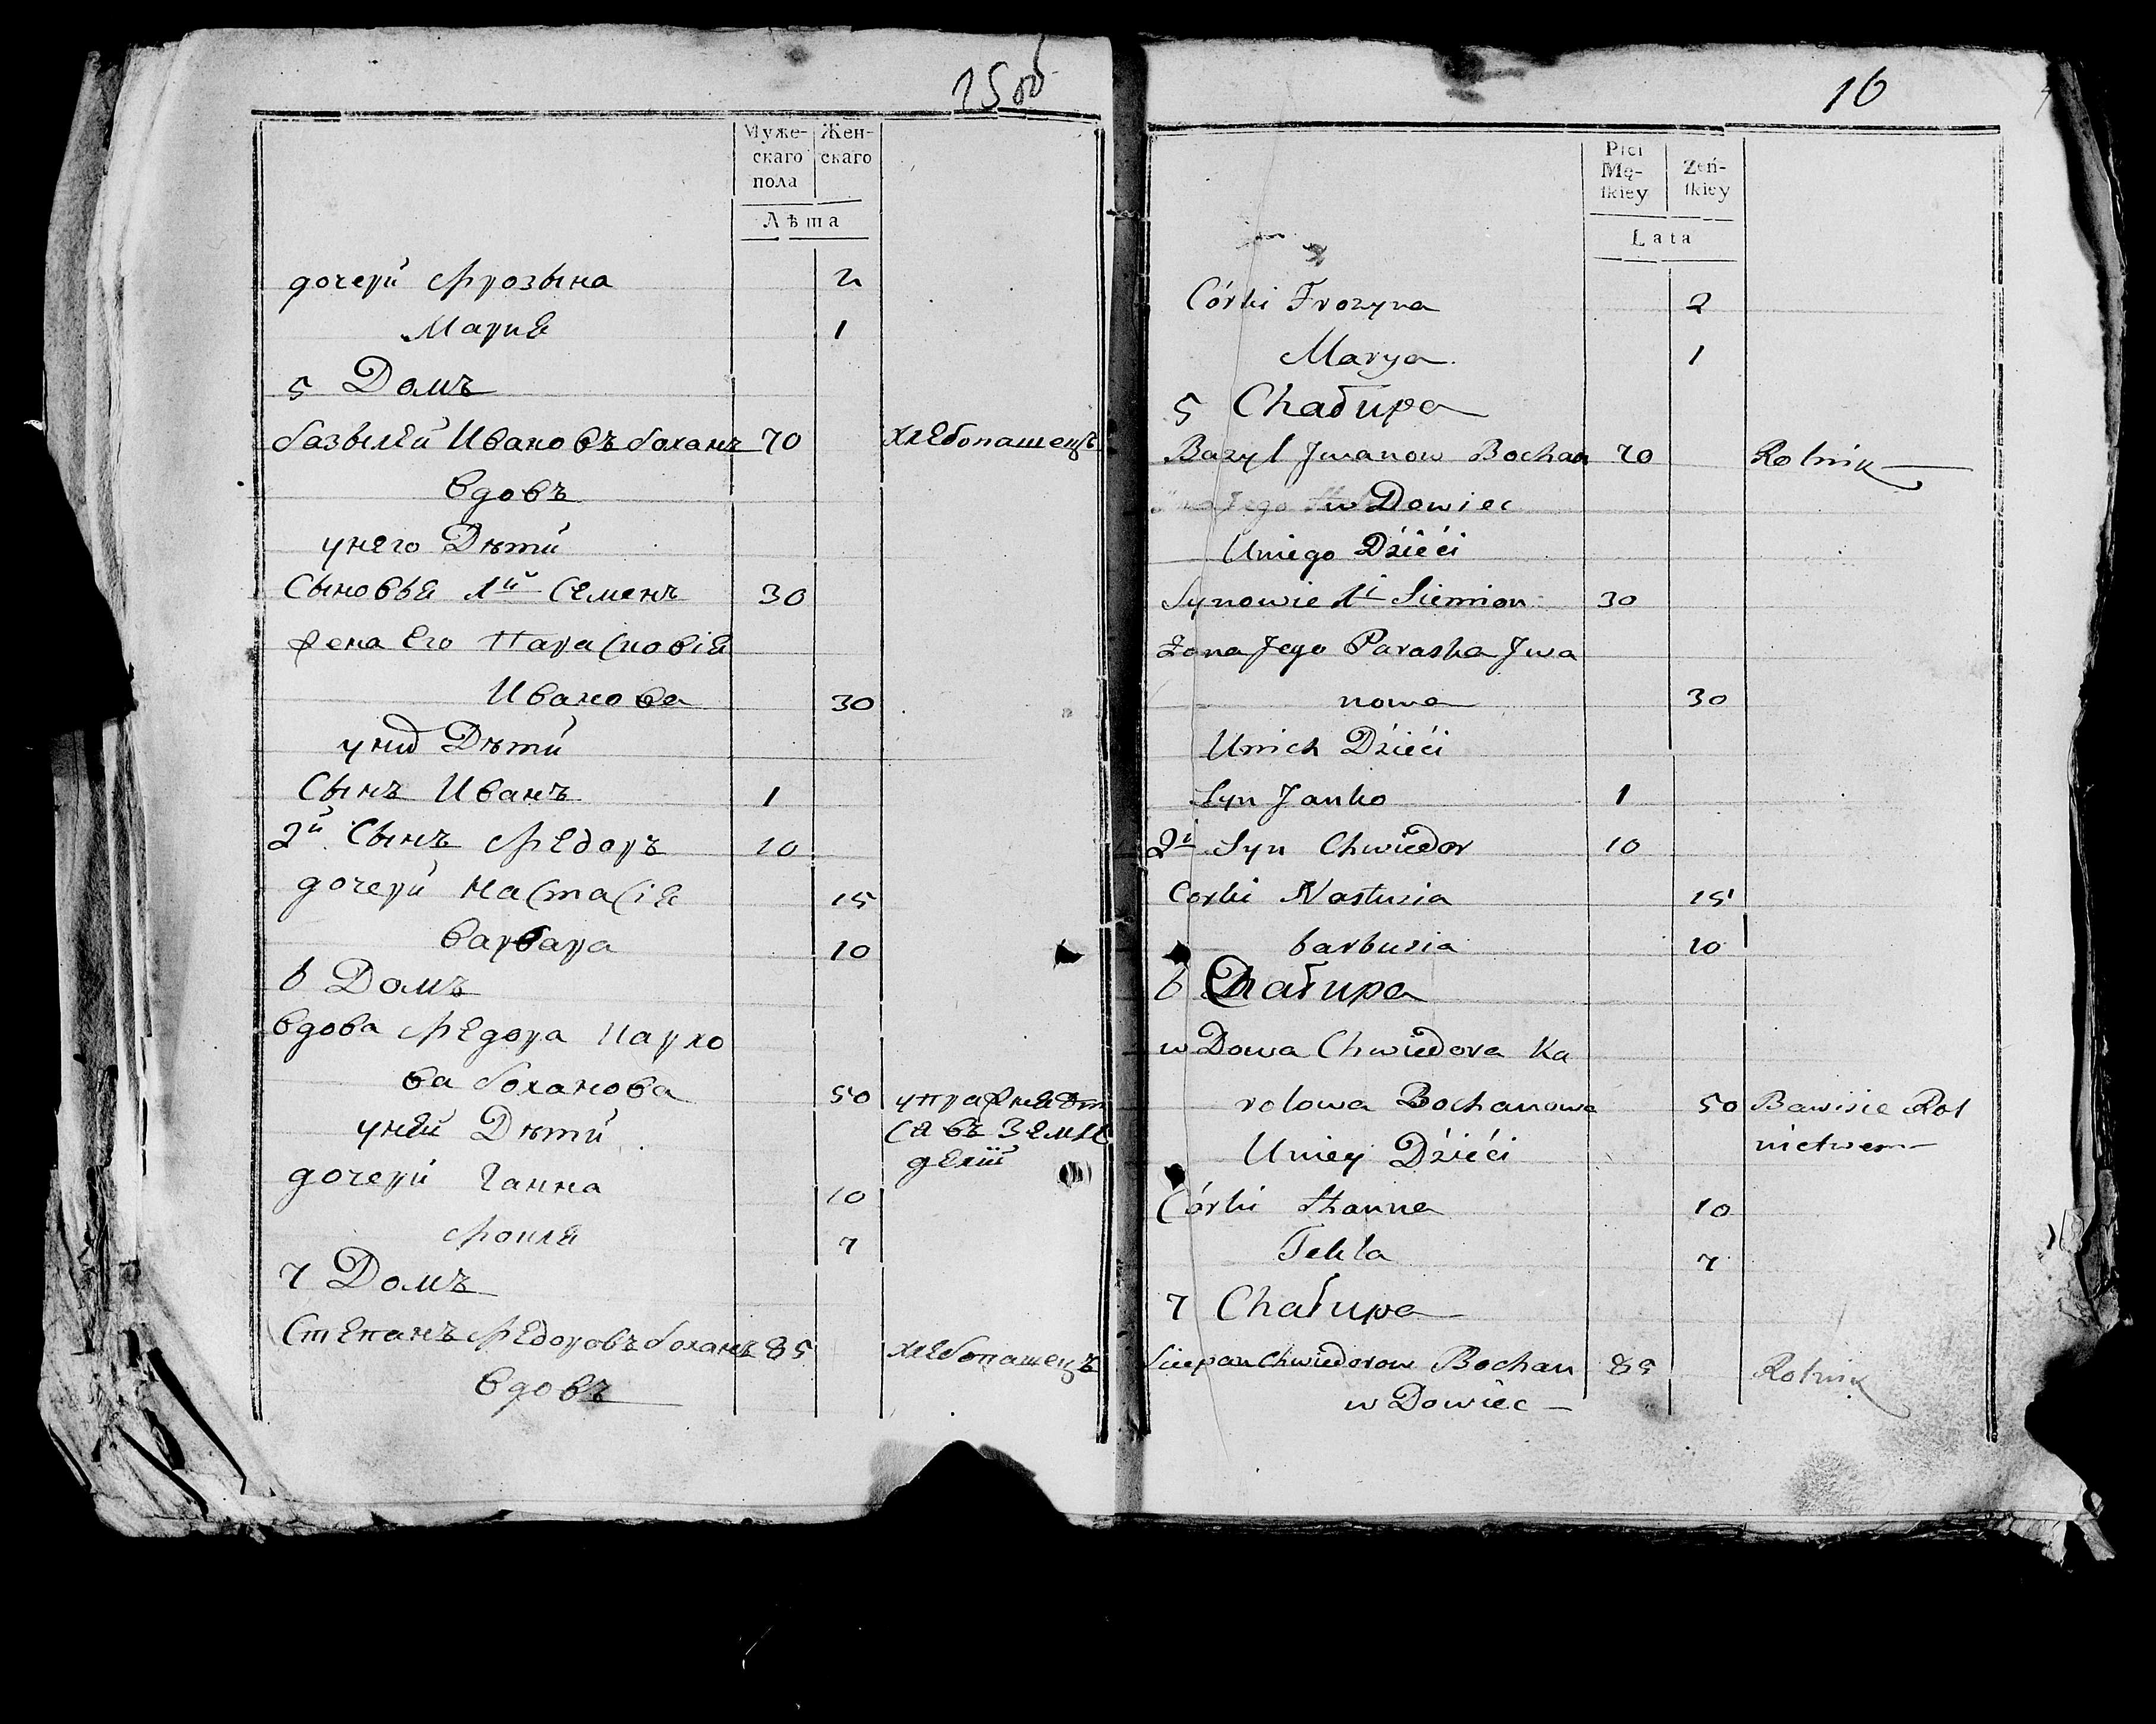 15 об
Муже-
скаго
пола
Жен-
скаго
Лѣта
дочери Фрозына 2
Марие 1
5 Домъ
базылей Ивановъ боханъ 70 хлебопашецъ
вдовъ
унего Дѣти
Сыновья 1й Семенъ 30
жена Его Парасковіе
Иванова 30
уних Дѣти
Сынъ Иванъ 1
2й Сынъ Федоръ 10
дочери Настасіе 15
варвара 10
6 Домъ
вдова Федора Кар
ва боханова 50 упражнает
ся въ Земле
уней Дѣти
делiй
дочери Ганна 10
7
7 Домъ
Степанъ Федоровъ боханъ 85 хлебопашецъ
вдовъ
16
Płci
Mę-
skiey
Żeń-
skiey
Lata
Córki Frozyna 2
Marya 1
5 Chałupa
Bazyl Jwanow Bochan 70 Rolnik
wDowiec
Uniego Dźieći
Synowie 1i Siemion 30
Żona Jego Paraska Jwa
nowa 30
Unich Dźieći
Syn Janko 1
2i Syn Chwiedor 10
Corki Nastusia 15
barbusia 10
6 Chałupa
wDowa Chwiedora Ka
rolowa Bochanowa 50 Bawisie Rol
nictwem
Uniey Dźieći
Córki Hanna 10
Tekla 7
7 Chałupa
Sciepan Chwiedorow Bochan 85 Rolnik
wDowiec